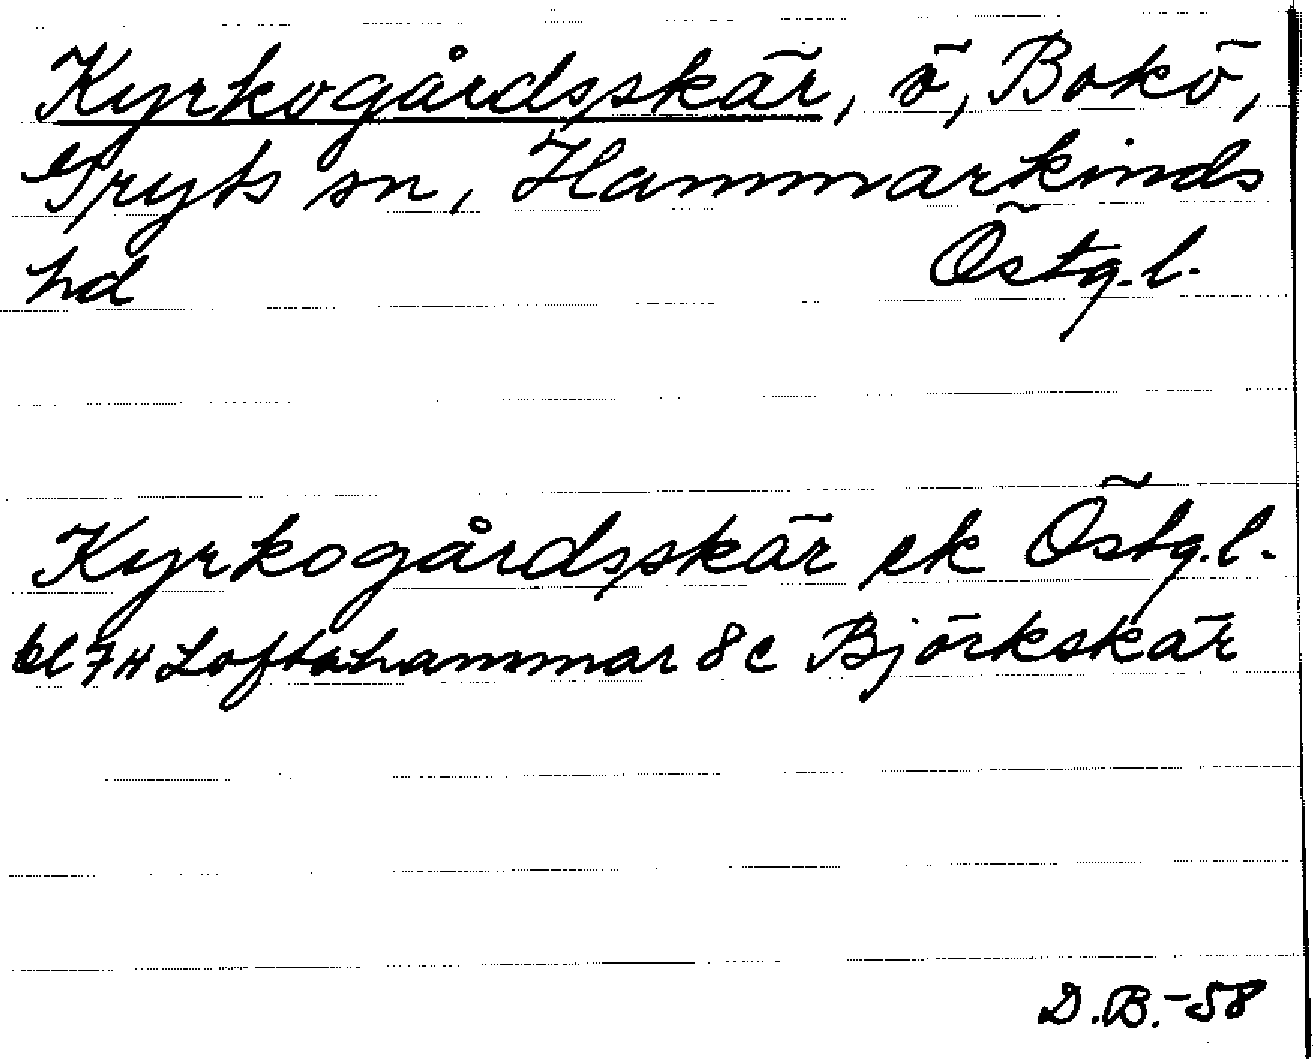 Kyrkogårdsskär, ö, Bokö,
Gryts sn, Hammarkinds
hd Östg.l.
Kyrkogårdsskär ek Östg.l.
bl 7H Loftahammar 8c Björkskär
D.B.-58